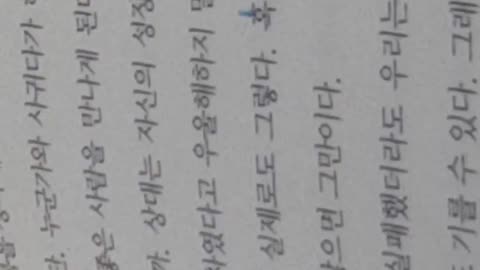 누군가와 사귀다가
좋은 사람을 만나게
상대는 자신의 성장
우울해하지
실제로도 그렇다.
그만이다.
실패했더라도 우리는
기를 수 있다. 그래